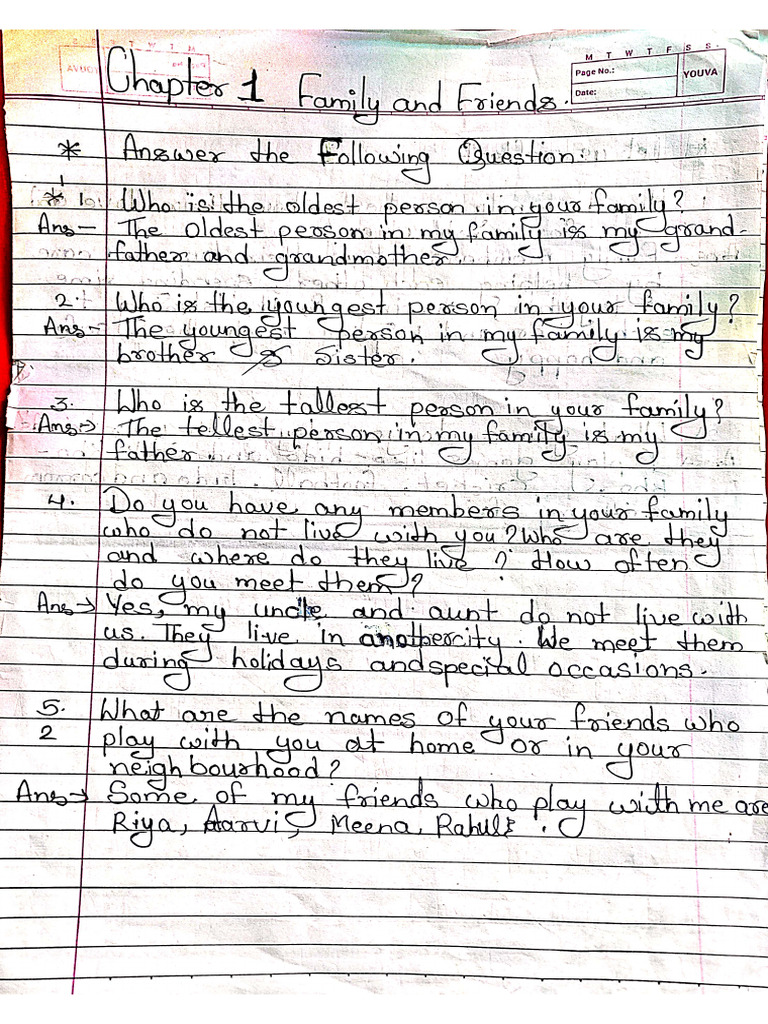 M T W T F S S
Page No.:
YOUVA
Date:
Chapter 1 Family and Friends.
* Answer the Following Question.
1
* 1. Who is the oldest person in your family?
Ans- The Oldest person in my family is my grand-
father and grandmother.
2. Who is the youngest person in your family?
Ans- The youngest person in my family is my
brother & Sister.
3. Who is the tallest person in your family?
Ans→ The tellest person in my family is my
father.
4. Do you have any members in your family
who do not live with you? Who are they
and where do they live? How often
do you meet them?
Ans→ Yes, my uncle and aunt do not live with
us. They live in anothercity. We meet them
during holidays andspecial occasions.
5. What are the names of your friends who
2 play with you at home or in your
neighbourhood?
Ans→ Some of my friends who play with me are
Riya, Aarvi, Meena, Rahul.